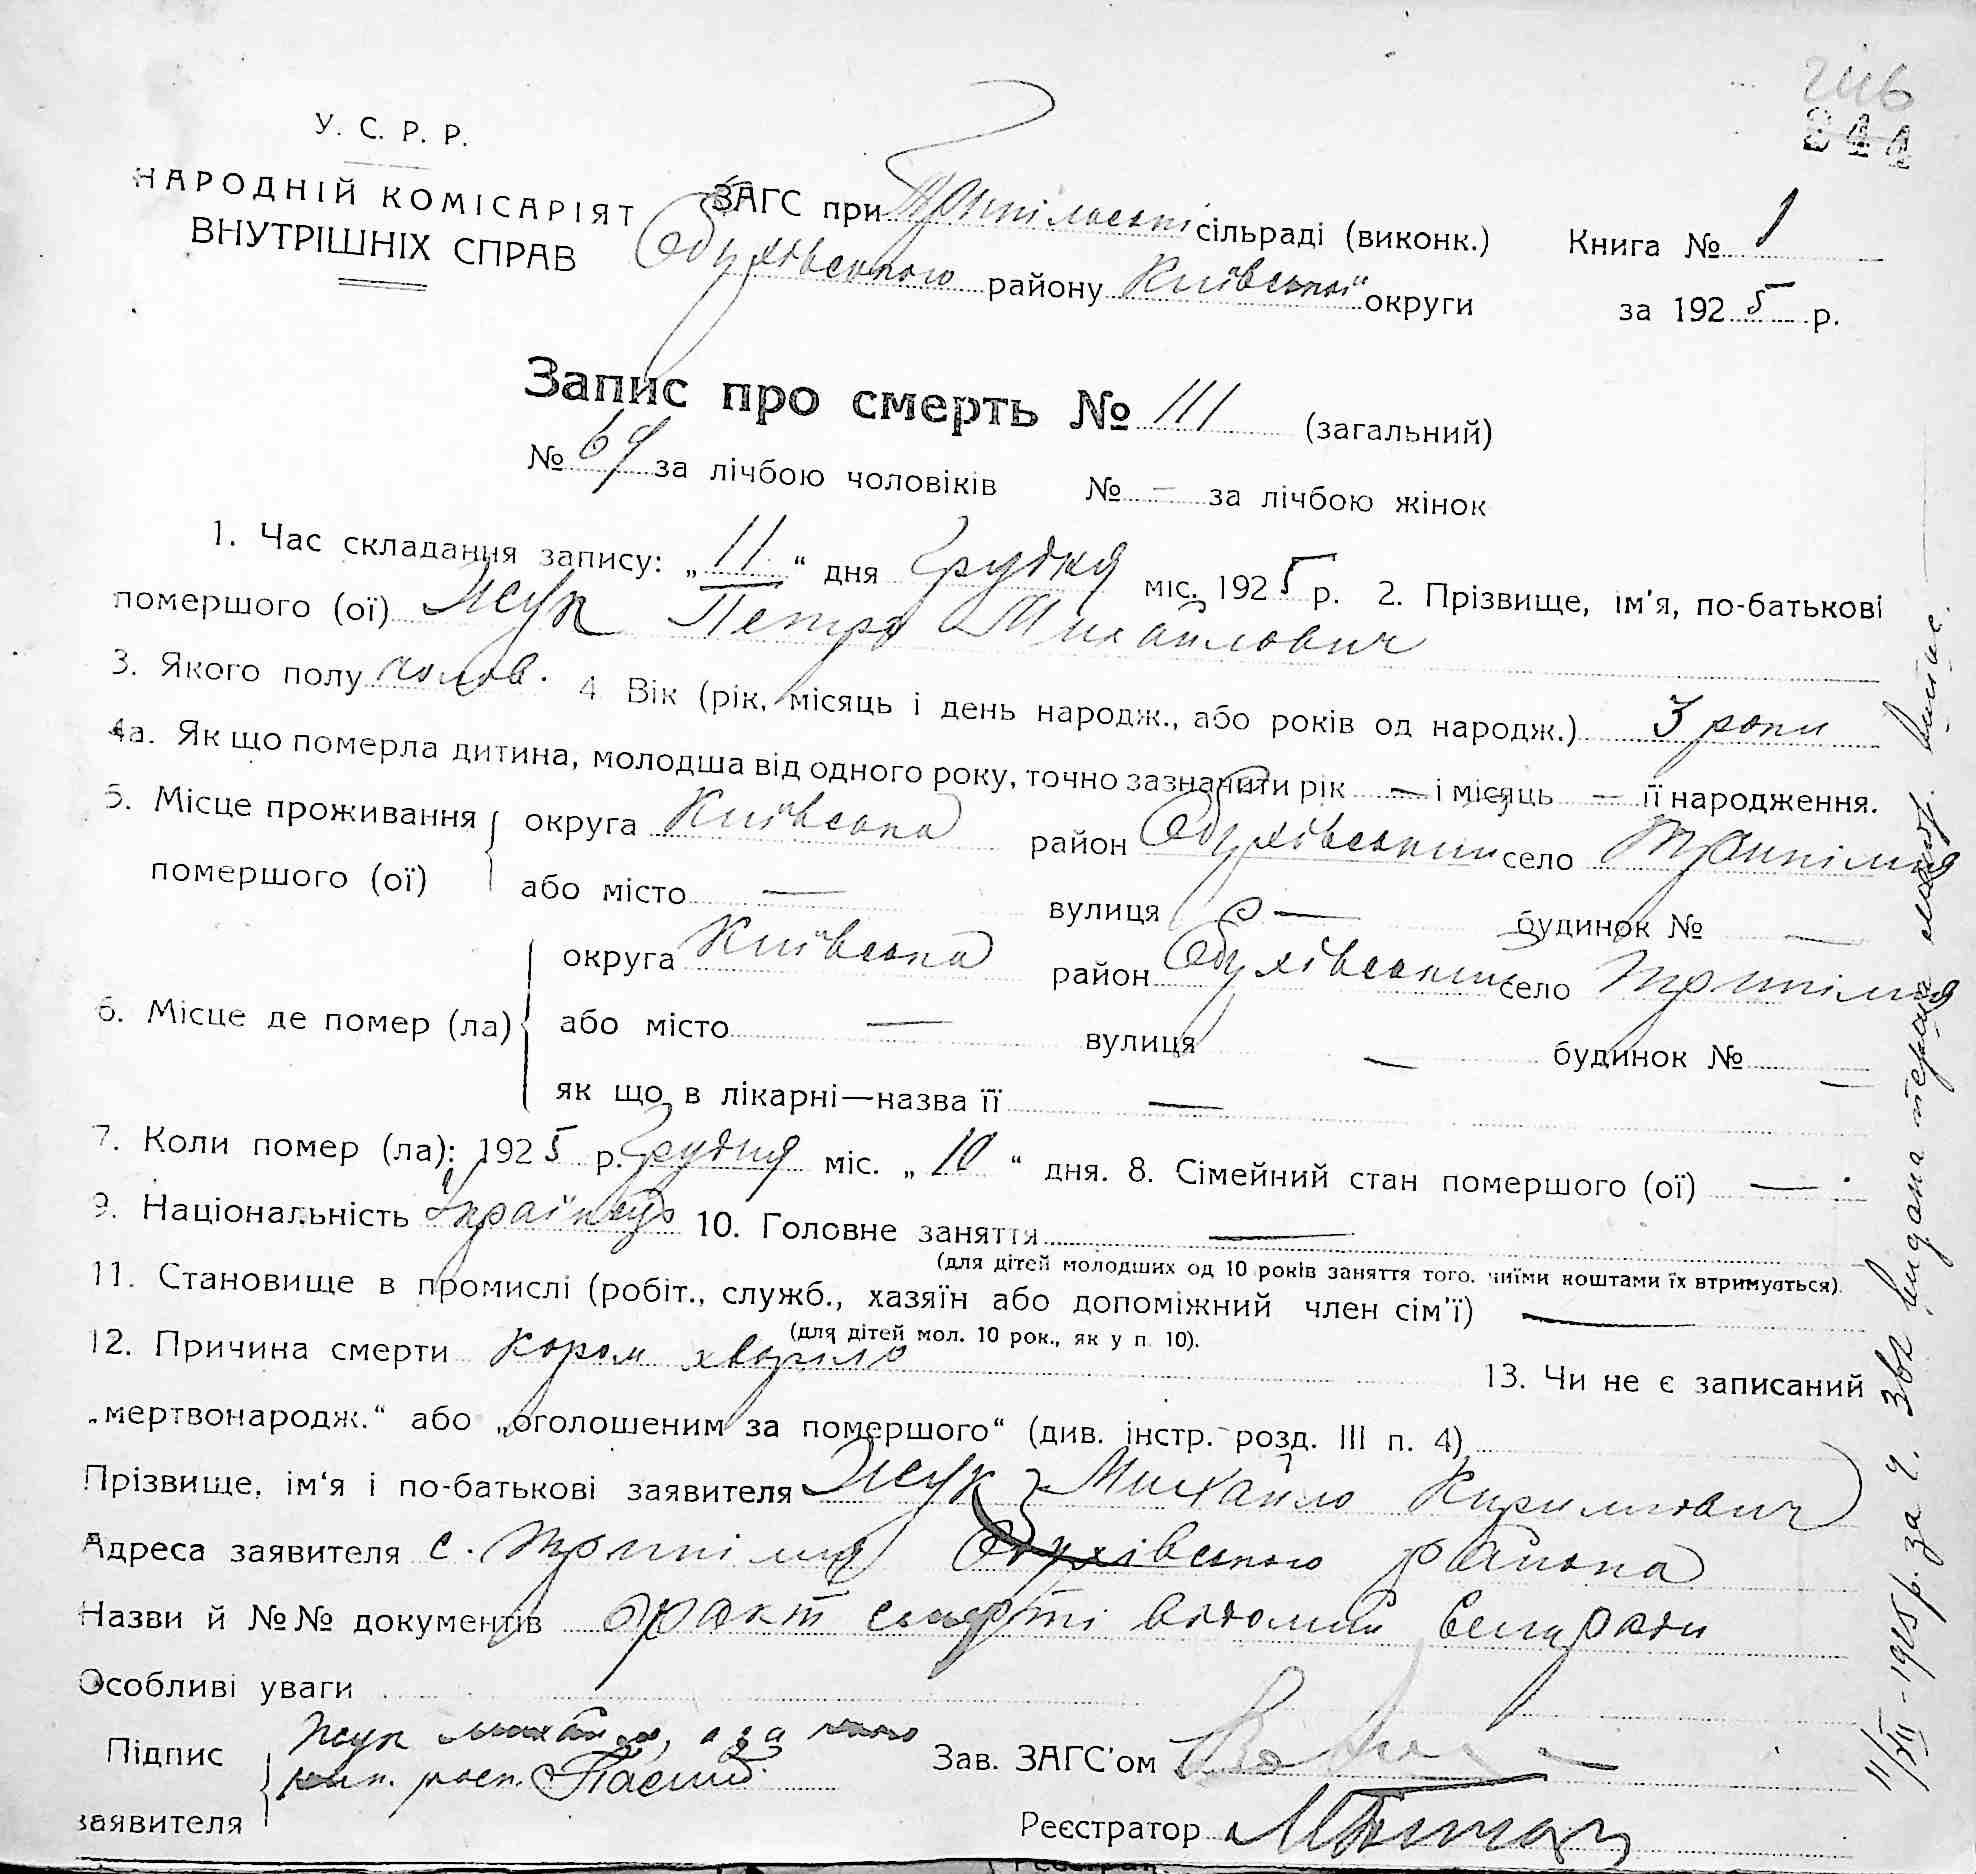 246
244
У. С. Р. Р.
НАРОДНІЙ КОМІСАРІЯТ
ВНУТРІШНІХ СПРАВ
ЗАГС при Трипільскі сільраді (виконк.) Книга № 1
Обухівського району Київської округи за 1925 р.
Запис про смерть № 111 (загальний)
№ 69 за лічбою чоловіків № — за лічбою жінок
1. Час складання запису: „11“ дня Грудня міс. 1925 р. 2. Прізвище, ім'я, по-батькові
помершого (ої) Жук Петро Михайлович
3. Якого полу чолов. 4 Вік (рік, місяць і день народж., або років од народж.) 3 роки
4а. Як що померла дитина, молодша від одного року, точно зазначити рік — і місяць — її народження.
5. Місце проживання округа Київська район Обухівський село Трипілля
помершого (ої) або місто — вулиця — будинок № —
округа Київська район Обухівський село Трипілля
6. Місце де помер (ла) або місто — вулиця — будинок № —
як що в лікарні—назва її —
7. Коли помер (ла): 1925 р. Грудня міс. „10“ дня. 8. Сімейний стан помершого (ої) —
9. Національність Українець 10. Головне заняття —
(для дітей молодших од 10 років заняття того, чиїми коштами їх втримуються).
11. Становище в промислі (робіт., служб., хазяїн або допоміжний член сім'ї) —
(для дітей мол. 10 рок., як у п. 10).
12. Причина смерти Кором хворіло 13. Чи не є записаний
„мертвонародж.“ або „оголошеним за помершого“ (див. інстр. розд. III п. 4)
Прізвище, ім'я і по-батькові заявителя Жук Михайло Кирилович
Адреса заявителя с. Трипілля Обухівського района
Назви й №№ документів факт смерті відомий Сельради
Особливі уваги
Підпис заявителя Жук Михайло, а за його
росп.
Зав. ЗАГС'ом
Реєстратор
11/XII-1925 р. за ч. видана